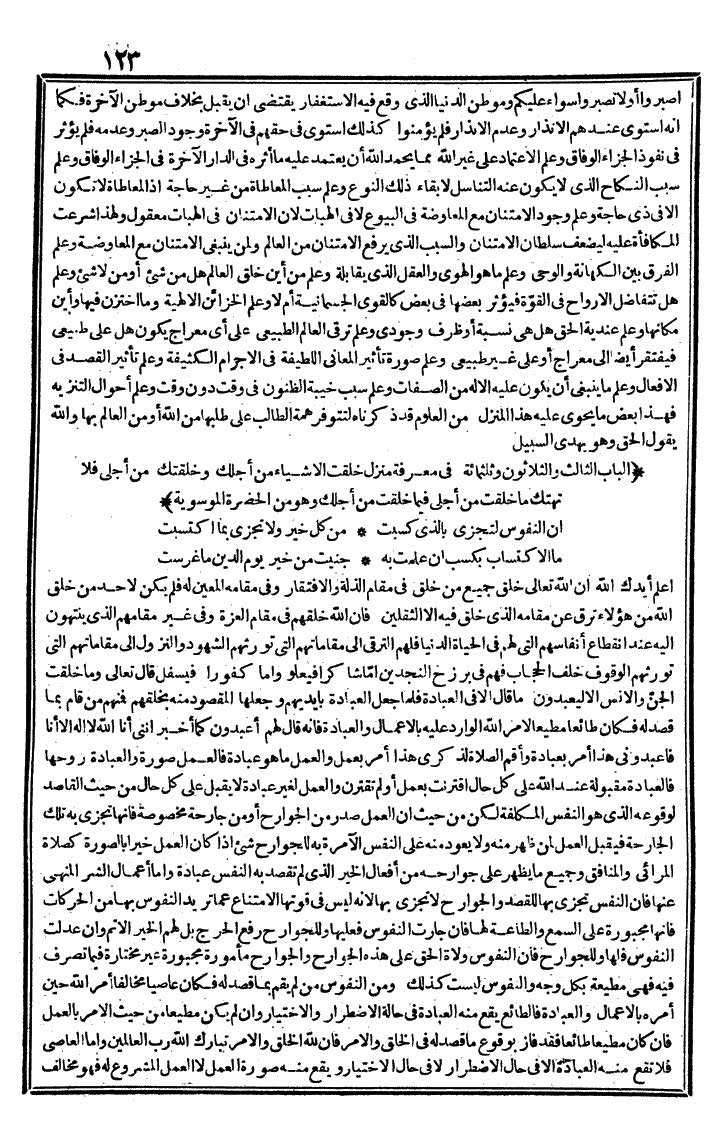 ١٢٣
اصبروا أولا تصبروا سواء عليكم وموطن الدنيا الذى وقع فيه الاستغفار يقتضى ان يقبل بخلاف موطن الآخرة فكما
انه استوى عندهم الانذار وعدم الانذار فلم يؤمنوا كذلك استوى فى حقهم فى الآخرة وجود الصبر وعدمه فلم يؤثر
فى نفوذ الجزاء الوفاق وعلم الاعتماد على غير الله مما يحمد الله أن يعتمد عليه ما أثره فى الدار الآخرة فى الجزاء الوفاق وعلم
سبب النكاح الذى لا يكون عنه التناسل لا بقاء ذلك النوع وعلم سبب المعاطاة من غير حاجة اذ المعاطاة لا تكون
الا فى ذى حاجة وعلم وجود الامتنان مع المعاوضة فى البيوع لا فى الهبات لان الامتنان فى الهبات معقول ولهذا شرعت
المكافأة عليه ليضعف سلطان الامتنان والسبب الذى يرفع الامتنان من العالم ولمن ينبغى الامتنان مع المعاوضة وعلم
الفرق بين الكهانة والوحى وعلم ما هو الهوى والعقل الذى يقابلة وعلم من أين خلق العالم هل من شئ أو من لا شئ وعلم
هل تتفاضل الارواح فى القوّة فيؤثر بعضها فى بعض كالقوى الجسمانية أم لا وعلم الخزائن الالهية وما اختزن فيها وأين
مكانها وعلم عندية الحق هل هى نسبة أو ظرف وجودى وعلم ترقى العالم الطبيعى على أى معراج يكون هل على طبيعى
فيفتقر أيضا الى معراج أو على غير طبيعى وعلم صورة تأثير المعانى اللطيفة فى الاجرام الكثيفة وعلم تأثير القصد فى
الافعال وعلم ما ينبغى أن يكون عليه الاله من الصفات وعلم سبب خيبة الظنون فى وقت دون وقت وعلم أحوال التنزيه
فهذا بعض ما يحوى عليه هذا المنزل من العلوم قد ذكرناه لتتوفر همة الطالب على طلبها من الله أو من العالم بها والله
يقول الحق وهو يهدى السبيل
﴿الباب الثالث والثلاثون وثلثمائة فى معرفة منزل خلقت الاشياء من أجلك وخلقتك من أجلى فلا
تهتك ما خلقت من أجلى فيما خلقت من أجلك وهو من الحضرة الموسوية﴾
ان النفوس لتجزى بالذى كسبت * من كل خير ولا تجزى بما اكتسبت
ما الاكتساب بكسب ان علمت به * جنيت من خير يوم الدين ما غرست
اعلم أيدك الله ان الله تعالى خلق جميع من خلق فى مقام الذلة والافتقار وفى مقامه المعين له فلم يكن لاحد من خلق
الله من هؤلاء ترق عن مقامه الذى خلق فيه الا الثقلين فان الله خلقهم فى مقام العزة وفى غير مقامهم الذى ينتهون
اليه عند انقطاع أنفاسهم التى لهم فى الحياة الدنيا فلهم الترقى الى مقاماتهم التى تورثهم الشهود والنزول الى مقاماتهم التى
تورثهم الوقوف خلف الحجاب فهم فى برزخ النجدين امّا شاكرا فيعلو واما كفورا فيسفل قال تعالى وما خلقت
الجنّ والانس الا ليعبدون ما قال الا فى العبادة فلما جعل العبادة بايديهم وجعلها المقصود منه بخلقهم فنهم من قام بما
قصد له فكان طائعا مطيعا لامر الله الوارد عليه بالاعمال والعبادة فانه قال لهم أعبدون كما أخبر اننى أنا الله لا اله الا أنا
فاعبدونى هذا أمر بعبادة وأقم الصلاة لذكرى هذا أمر بعمل والعمل ما هو عبادة فالعمل صورة والعبادة روحها
فالعبادة مقبولة عند الله على كل حال اقترنت بعمل أو لم تقترن والعمل لغير عبادة لا يقبل على كل حال من حيث القاصد
لوقوعه الذى هو النفس المكلفة لكن من حيث ان العمل صدر من الجوارح أو من جارحة مخصوصة فانها تجزى به تلك
الجارحة فيقبل العمل لمن ظهر منه ولا يعود منه على النفس الآمرة به للجوارح شئ اذا كان العمل خيرا بالصورة كصلاة
المرائى والمنافق وجميع ما يظهر على جوارحه من أفعال الخير الذى لم تقصد به النفس عبادة واما أعمال الشر المنهى
عنها فان النفس تجزى بها للقصد والجوارح لا تجزى بها لانه ليس فى قوتها الامتناع عما تريد النفوس بها من الحركات
فانها مجبورة على السمع والطاعة لها فان جارت النفوس فعليها وللجوارح رفع الحرج بل لهم الخير الاتم وان عدلت
النفوس فلها وللجوارح فان النفوس ولاة الحق على هذه الجوارح والجوارح مأمورة مجبورة غير مختارة فيما تصرف
فيه فهى مطيعة بكل وجه والنفوس ليست كذلك ومن النفوس من لم يقم بما قصد له فكان عاصيا مخالفا أمر الله حين
أمره بالاعمال والعبادة فالطائع يقع منه العبادة فى حالة الاضطرار والاختيار وان لم يكن مطيعا من حيث الامر بالعمل
فان كان مطيعا طائعا فقد فاز بوقوع ما قصد له فى الخلق والامر فان لله الخلق والامر تبارك الله رب العالمين واما العاصى
فلا تقع منه العبادة الا فى حال الاضطرار لا فى حال الاختيار ويقع منه صورة العمل لا العمل المشروع له فهو مخالف